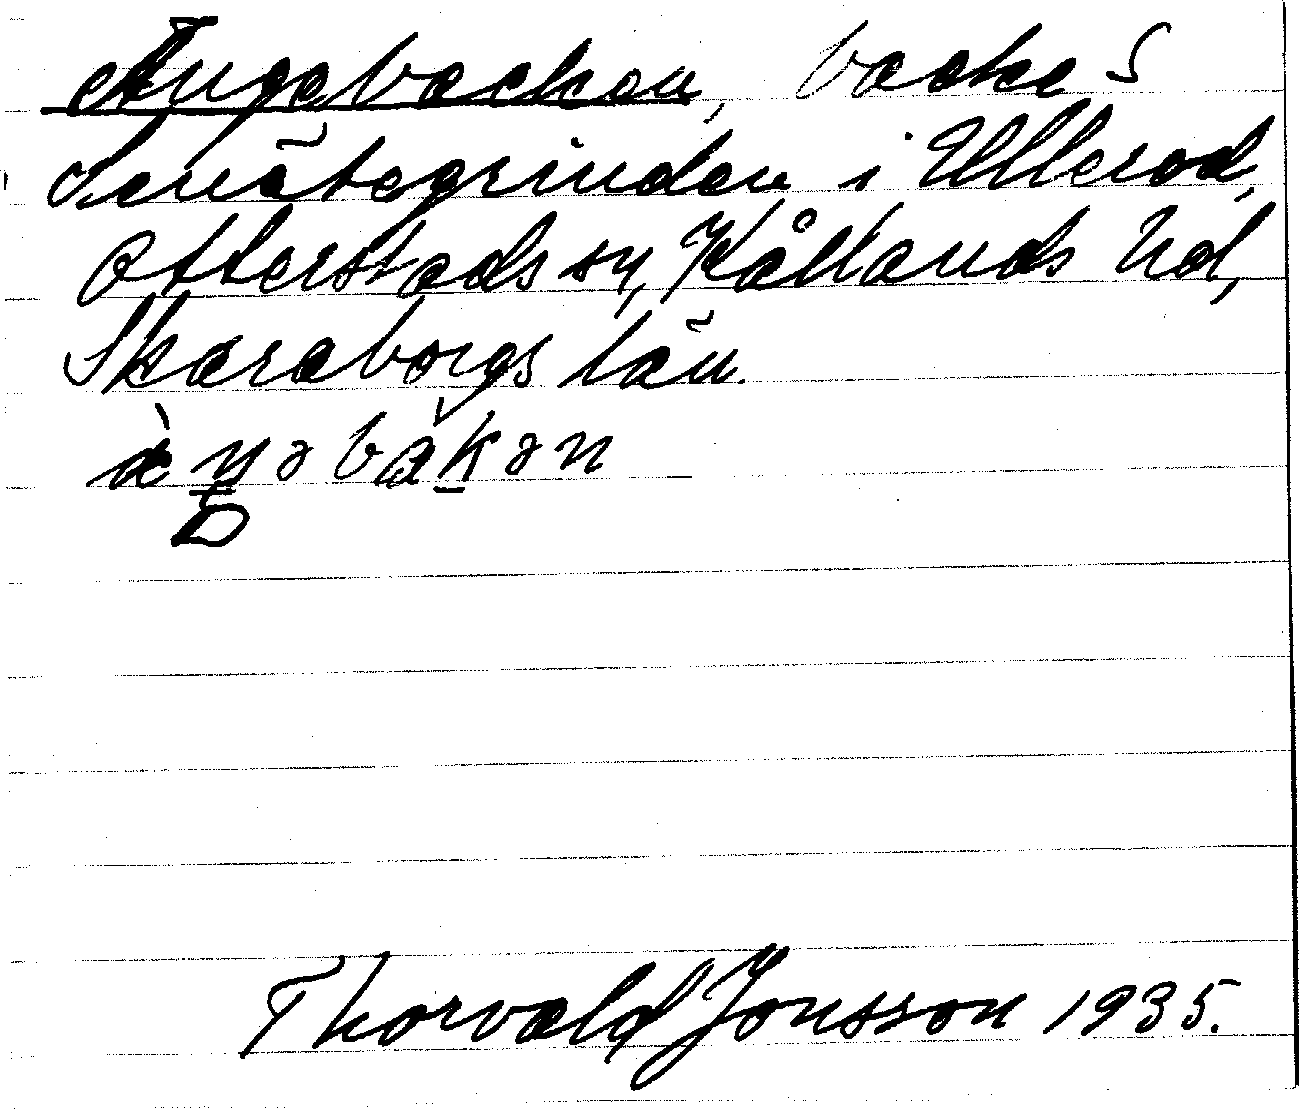 Ängabacken, backe S
Senätegrinden i Ullerod,
Otterstads sn, Kållands hd,
Skaraborgs län.
Thorvald Jonsson 1935.